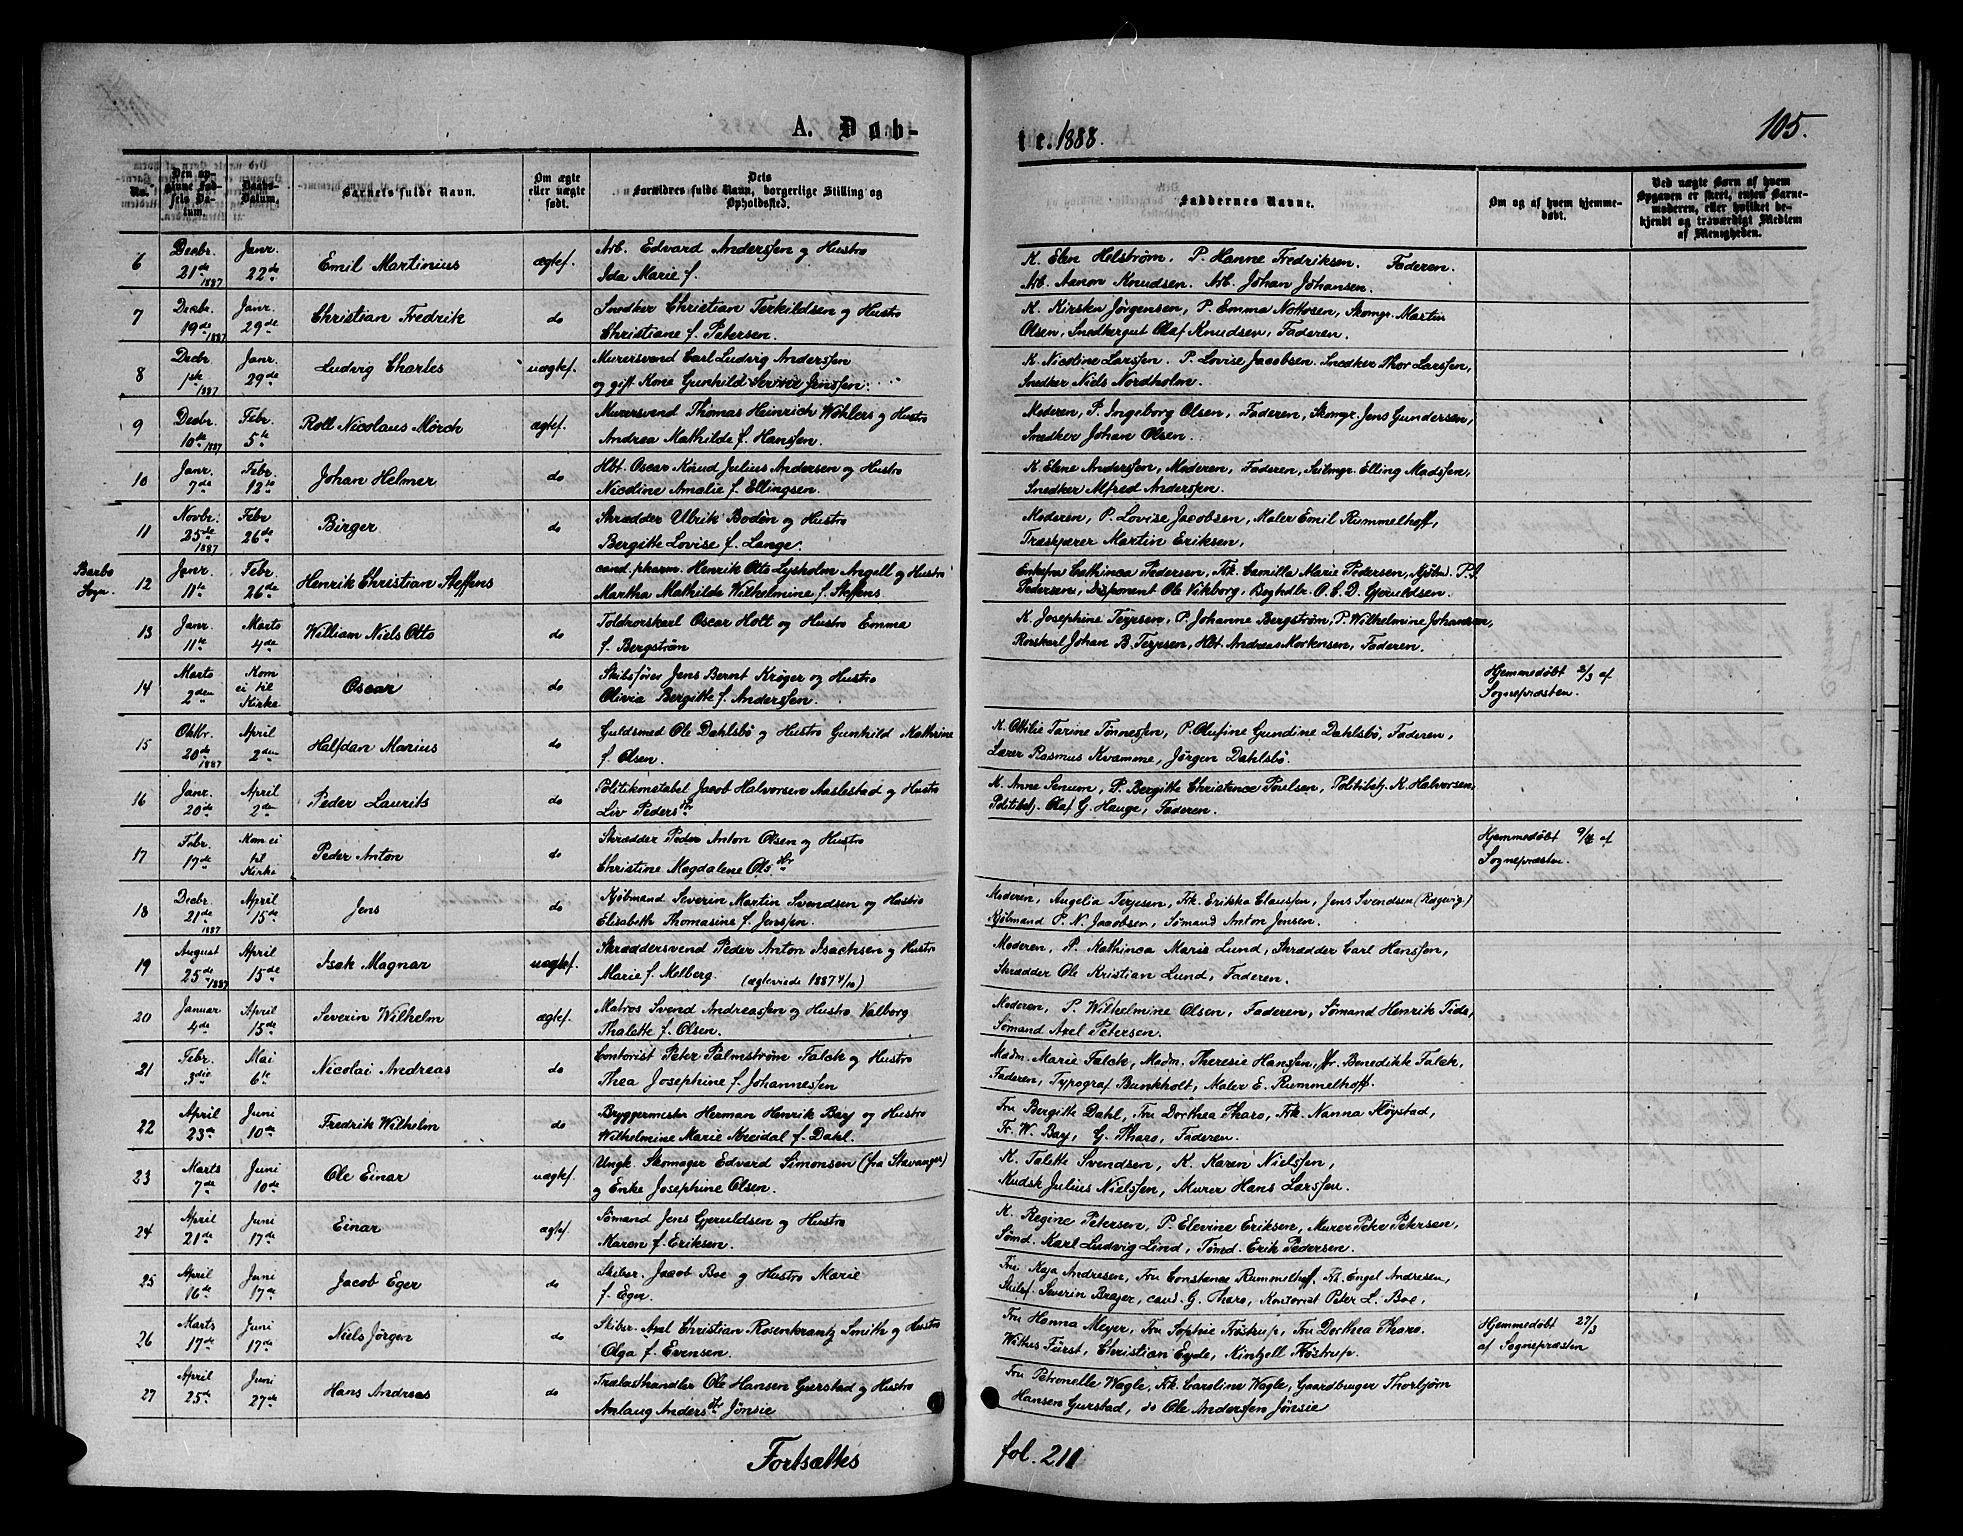 A. Døb-
te. 1888.
105.
No.
Den opgivne Fødsels Datum.
Daabs-Datum.
Barnets fulde Navn.
Om ægte eller uægte født.
Dets Forældres fulde Navn, borgerlige Stilling og Opholdssted.
Faddernes Navne.
Om og af hvem hjemmedøbt.
Ved uægte Børn af hvem Opgaven er skeet, enten Barnemoderen, eller hvilket bekjendt og troværdigt Medlem af Menigheden.
6 Decbr. 21de 1887 Janr. 22de Emil Martinius ægtef. Arb. Edvard Anderssen og Hustro
Ida Marie f.
K. Elen Helstrøm. P. Hanne Fredriksen. Faderen.
Arb. Aanon Knudsen. Arb. Johan Johansen.
7 Decbr. 19de 1887 Janr. 29de Christian Fredrik do Snedker Christian Terkildsen og Hustro
Christiane f. Petersen.
K. Kirsten Jörgensen, P. Emma Nottosen, Skomgr. Martin
Olsen, Snedkergut Olaf Knudsen, Faderen.
8 Decbr. 1ste 1887 Janr. 29de Ludvig Charles uægtef. Murersvend Carl Ludvig Anderssen
og gift Kone Gunhild Servine Jenssen.
K. Nicoline Larssen. P. Lovise Jacobsen. Snedker Thor Larssen,
Snedker Niels Nordholm.
9 Decbr. 10de 1887 Febr. 5te Roll Nicolaus Mörch ægtef. Murersvend Thomas Heinrich Wöhlers og Hustro
Andrea Mathilde f. Hanssen.
Moderen, P. Ingeborg Olsen, Faderen, Skomgr. Jens Gundersen,
Snedker Johan Olsen.
10 Janr. 7de Febr. 12te Johan Helmer do Hbt. Oscar Knud Julius Andersen og Hustro
Nicoline Amalie f. Ellingsen.
K. Elene Anderssen, Moderen, Faderen, Seilmgr. Elling Madssen,
Snedker Alfred Anderssen.
11 Novbr. 25de 1887 Febr 26de Birger do Skrædder Ulrik Bodèn og Hustro
Bergitte Lovise f. Lange.
Moderen, P. Lovise Jacobsen, Maler Emil Rummelhoff,
Træskjærer Martin Eriksen,
Barbo Sogn. 12 Janr. 11te Febr 26de Henrik Christian Steffens do cand. pharm. Henrik Otto Lysholm Angell og Hustro
Martha Mathilde Wilhelmine f. Steffens.
Enkefru Cathinca Pedersen, Frk. Camilla Marie Pedersen, Kjöbm. P. J.
Pedersen, Disponent Ole Vikborg, Boghdlr. O. C. D. Gjeruldsen.
13 Janr. 11te Marts 4de William Niels Otto do Toldrorskarl Oscar Holt og Hustro Emma
f. Bergström
K. Josephine Terjesen, P. Johanne Bergström, P. Wilhelmine Johansen,
Rorskarl Johan B. Terjesen, Hbt. Andreas Mortensen, Faderen.
14 Marts 2den Kom ei til Kirke Oscar do Skibsförer Jens Bernt Kröger og Hustro
Olivia Bergitte f. Anderssen.
Hjemmedöbt 2/3 af
Sognepræsten.
15 Oktbr. 20de 1887 April 2den Halfdan Marius do Guldsmed Ole Dahlsbö og Hustro Gunhild Kathrine
f. Olsen.
K. Othilie Tarine Tönnessen, P. Olufine Gundine Dahlsbö, Faderen,
Lærer Rasmus Kvamme, Jörgen Dahlsbö.
16 Janr. 20de April 2den Peder Laurits do Politikonstabel Jacob Halvorsen Aaslestad og Hustro
Liv Pedersdtr
K. Anne Senum, P. Bergitte Christence Poulsen, Politibtj. K. Halvorsen,
Politibtj. Olaf G. Hauge, Faderen.
17 Febr. 17de Kom ei til Kirke Peder Anton do Skrædder Peder Anton Olsen og Hustro
Christine Magdalene Olsdtr
Hjemmedöbt 9/4 af
Sognepræsten.
18 Decbr. 21de 1887 April 15de Jens do Kjöbmand Severin Martin Svendsen og Hustro
Elisabeth Thomasine f. Jenssen.
Moderen, Angelia Terjesen, Frk. Erikka Claussen, Jens Svendsen (Rægevig)
Kjöbmand P. N. Jacobsen, Sömand Anton Jensen.
19 August 25de 1887 April 15de Isak Magnar uægtef. Skræddersvend Peder Anton Isachsen og Hustro
Marie f. Molberg. (ægteviede 1887 4/10)
Moderen, P. Kathinca Marie Lund, Skrædder Carl Hanssen,
Skrædder Ole Kristian Lund, Faderen.
20 Januar 4de April 15de Severin Wilhelm ægtef. Matros Svend Andreassen og Hustro Valborg
Thalette f. Olsen.
Moderen, P. Wilhelmine Olsen, Faderen, Sömand Henrik Tide,
Sömand Axel Petersen.
21 Febr. 3die Mai 6te Nicolai Andreas do Contorist Peter Palmström Falck og Hustro
Thea Josephine f. Johannessen
Madm. Marie Falck, Madm. Theresie Hanssen, Jfr. Benedikte Falck,
Faderen, Typograf Bunkholt, Maler E. Rummelhoff.
22 April 23de Juni 10de Fredrik Wilhelm do Bryggermester Herman Henrik Bay og Hustro
Wilhelmine Marie Nreidal f. Dahl.
Fru Bergitte Dahl, Fru Dorthea Tharo, Frk. Nanna Flöystad,
Fr. W. Bay, G. Tharo, Faderen.
23 Marts 7de Juni 10de Ole Einar uægtef. Ungk. Skomager Edvard Simonsen (fra Stavanger)
og Enke Josephine Olsen.
K. Talette Svendsen, K. Karen Nielssen,
Kudsk Julius Nielssen, Murer Hans Larssen.
24 April 21de Juni 17de Einar ægtef. Sömand Jens Gjeruldsen og Hustro
Maren f. Eriksen.
K. Regine Petersen, P. Elevine Eriksen, Murer Peter Petersen,
Sömd. Karl Ludvig Lind, Tömd. Erik Pedersen.
25 April 16de Juni 17de Jacob Eger do Skibsr. Jacob Boe og Hustro Marie
f. Eger.
Fru Kaja Andresen, Fru Constance Rummelhoff, Frk. Engel Andresen,
Skibsf. Severin Brager, cand. G. Tharo, Kontorist Peter L. Boe,
26 Marts 17de Juni 17de Niels Jörgen do Skibsr. Axel Christian Rosenkrantz Smith og Hustro
Olga f. Evensen.
Fru Hanna Meyer, Fru Sophie Fröstrup, Fru Dorthea Tharo.
Wittus Fürst, Christian Eyde, Kintzell Fröstrup.
Hjemmedöbt 27/3
af Sognepræsten
27 April 25de Juni 27de Hans Andreas do Trælasthandler Ole Hansen Gjerstad og Hustro
Aslaug Andersdtr Jönsie
Fru Petronelle Wagle, Frk. Caroline Wagle, Gaardbruger Thorbjörn
Hansen Gjerstad, do Ole Anderssen Jönsie
Fortsættes
fol. 211